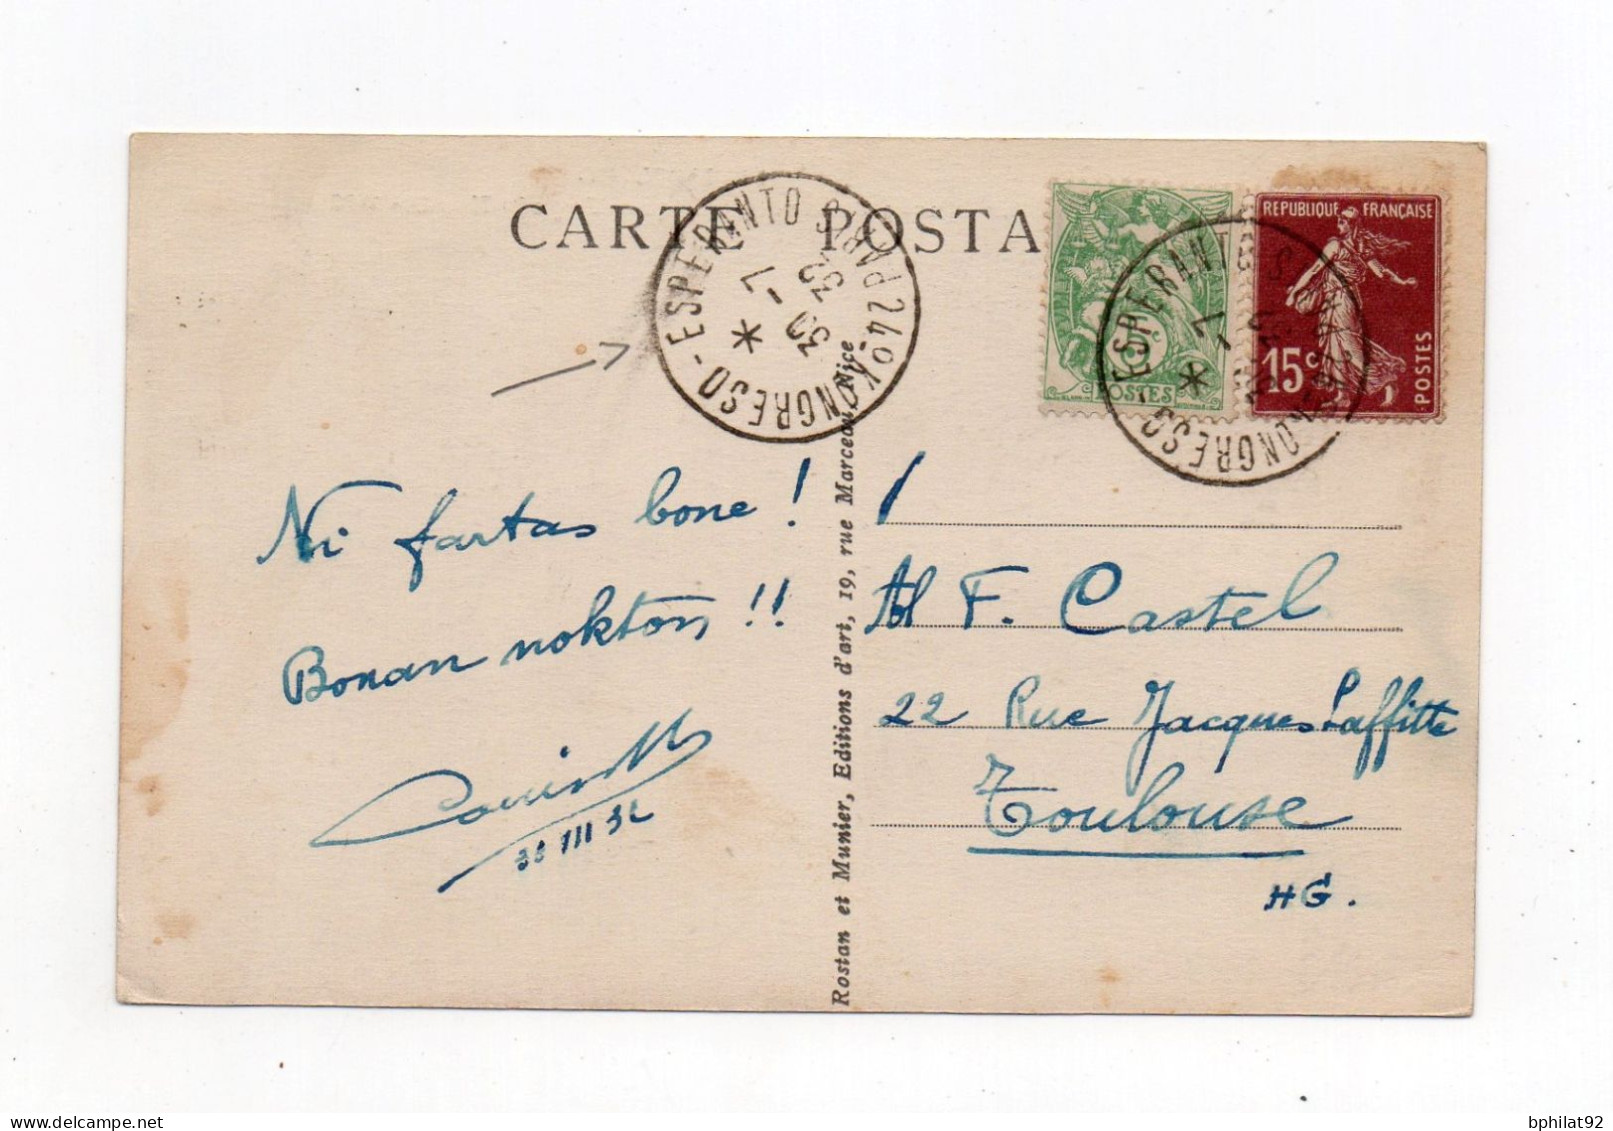 CARTE POSTA
24º KONGRESO - ESPERANTO S/ PARIS
* 30 - 7 32
5c
POSTES
REPUBLIQUE FRANÇAISE
15c
POSTES
KONGRESO - ESPERANTO S
* 7
Ni fartas bone !
Bonan nokton !!
30 VII 32
Rostan et Munier, Editions d'art, 19, rue Marceau, Nice
Al F. Castel
22 Rue Jacques Laffitte
Toulouse
HG.
bphilat92